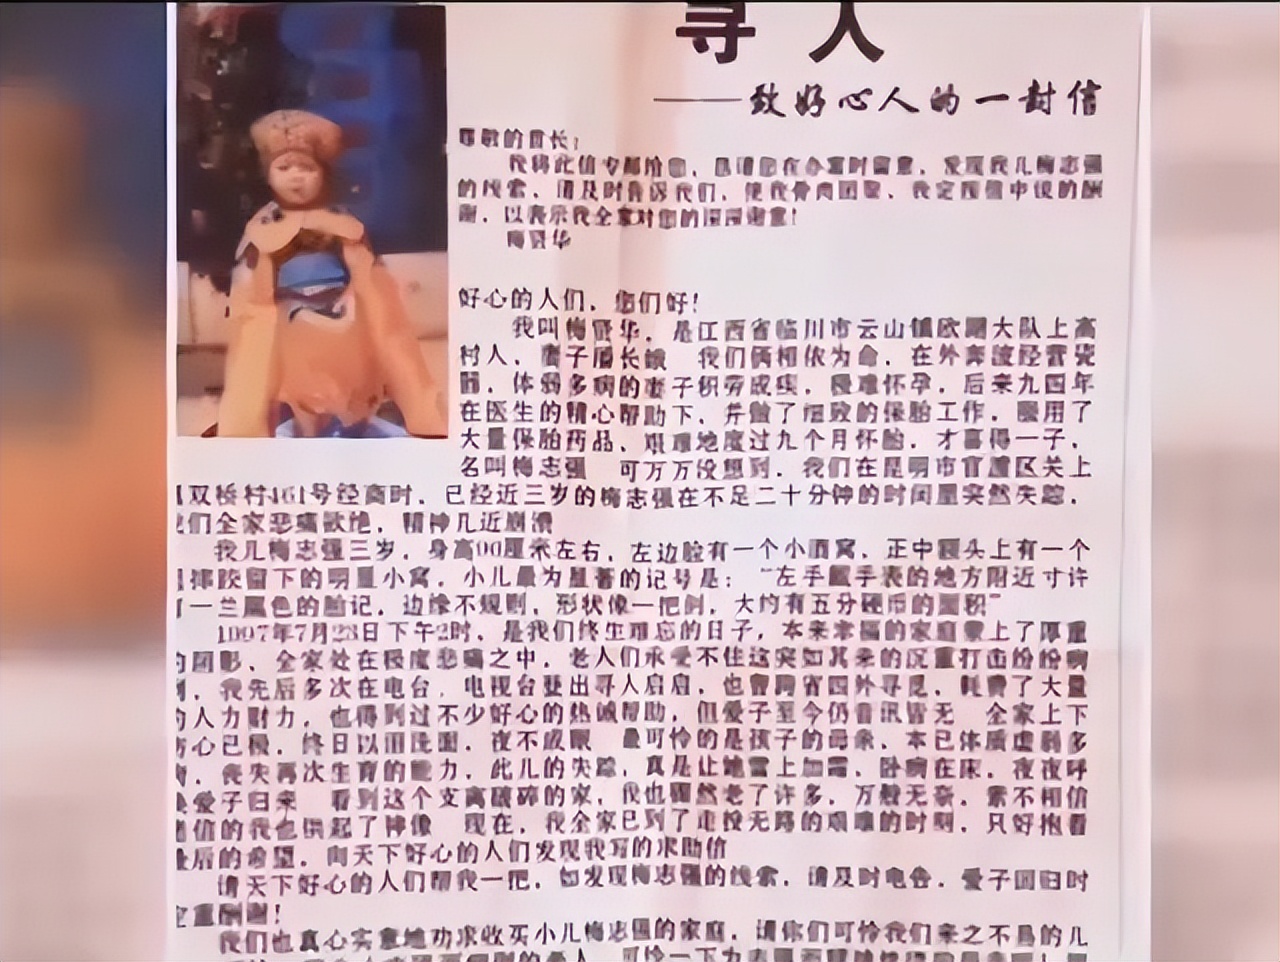 寻人
——致好心人的一封信
尊敬的首长：
我将此信专邮给您，恳请您在办案时留意，发现我儿梅志强
的线索，请及时告诉我们，使我骨肉团聚，我定按信中说的酬
谢，以表示我全家对您的深深谢意！
梅贤华
好心的人们，您们好！
我叫梅贤华，是江西省临川市云山镇欧湖大队上高
村人，妻子周长娥 我们俩相依为命，在外奔波经营瓷
器，体弱多病的妻子积劳成疾，极难怀孕，后来九四年
在医生的精心帮助下，并做了细致的保胎工作，服用了
大量保胎药品，艰难地度过九个月怀胎，才喜得一子，
名叫梅志强 可万万没想到，我们在昆明市官渡区关上
双桥村461号经商时，已经近三岁的梅志强在不足二十分钟的时间里突然失踪，
我们全家悲痛欲绝，精神几近崩溃
我儿梅志强三岁，身高90厘米左右，左边脸有一个小酒窝，正中额头上有一个
摔跤留下的明显小窝，小儿最为显著的记号是：“左手戴手表的地方附近寸许
有一兰黑色的胎记，边缘不规则，形状像一把剑，大约有五分硬币的面积”
1997年7月23日下午2时，是我们终生难忘的日子，本来幸福的家庭蒙上了厚重
的阴影，全家处在极度悲痛之中，老人们承受不住这突如其来的沉重打击纷纷病
倒，我先后多次在电台，电视台登出寻人启启，也曾跨省四外寻觅，耗费了大量
的人力财力，也得到过不少好心的热诚帮助，但爱子至今仍音讯皆无 全家上下
伤心已极，终日以泪洗面，夜不成眠 最可怜的是孩子的母亲，本已体质虚弱多
病，丧失再次生育的能力，此儿的失踪，真是让她雪上加霜，卧病在床，夜夜呼
唤爱子归来 看到这个支离破碎的家，我也骤然老了许多，万般无奈，素不相信
迷信的我也供起了神像 现在，我全家已到了走投无路的艰难的时刻，只好抱着
最后的希望，向天下好心的人们发现我写的求助信
请天下好心的人们帮我一把，如发现梅志强的线索，请及时电告，爱子回归时
定重酬谢！
我们也真心实意地劝求收买小儿梅志强的家庭，请你们可怜我们来之不易的儿